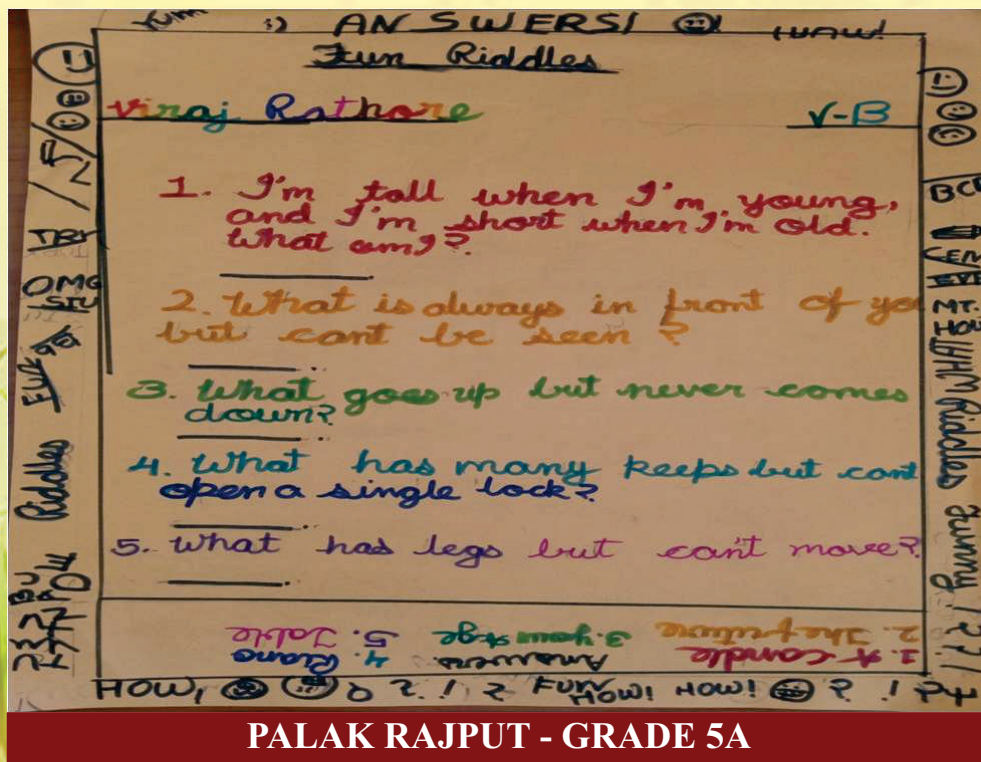 Yum :) ANSWERS!
Fun Riddles
Viraj Rathore V-B
1. I'm tall when I'm young,
and I'm short when I'm old.
What am I?
2. What is always in front of yo
but cant be seen?
3. What goes up but never comes
down?
4. What has many keeps but cant
open a single lock?
5. What has legs but can't move?
Answers
1. A candle
2. The future
3. your stage
4. Piano
5. Table
HOW, ? ! ? FUN HOW! HOW! ? !
OMG
Riddles
BCO
MT.
HOW
Riddles
Funny ! ? ? !
PALAK RAJPUT - GRADE 5A